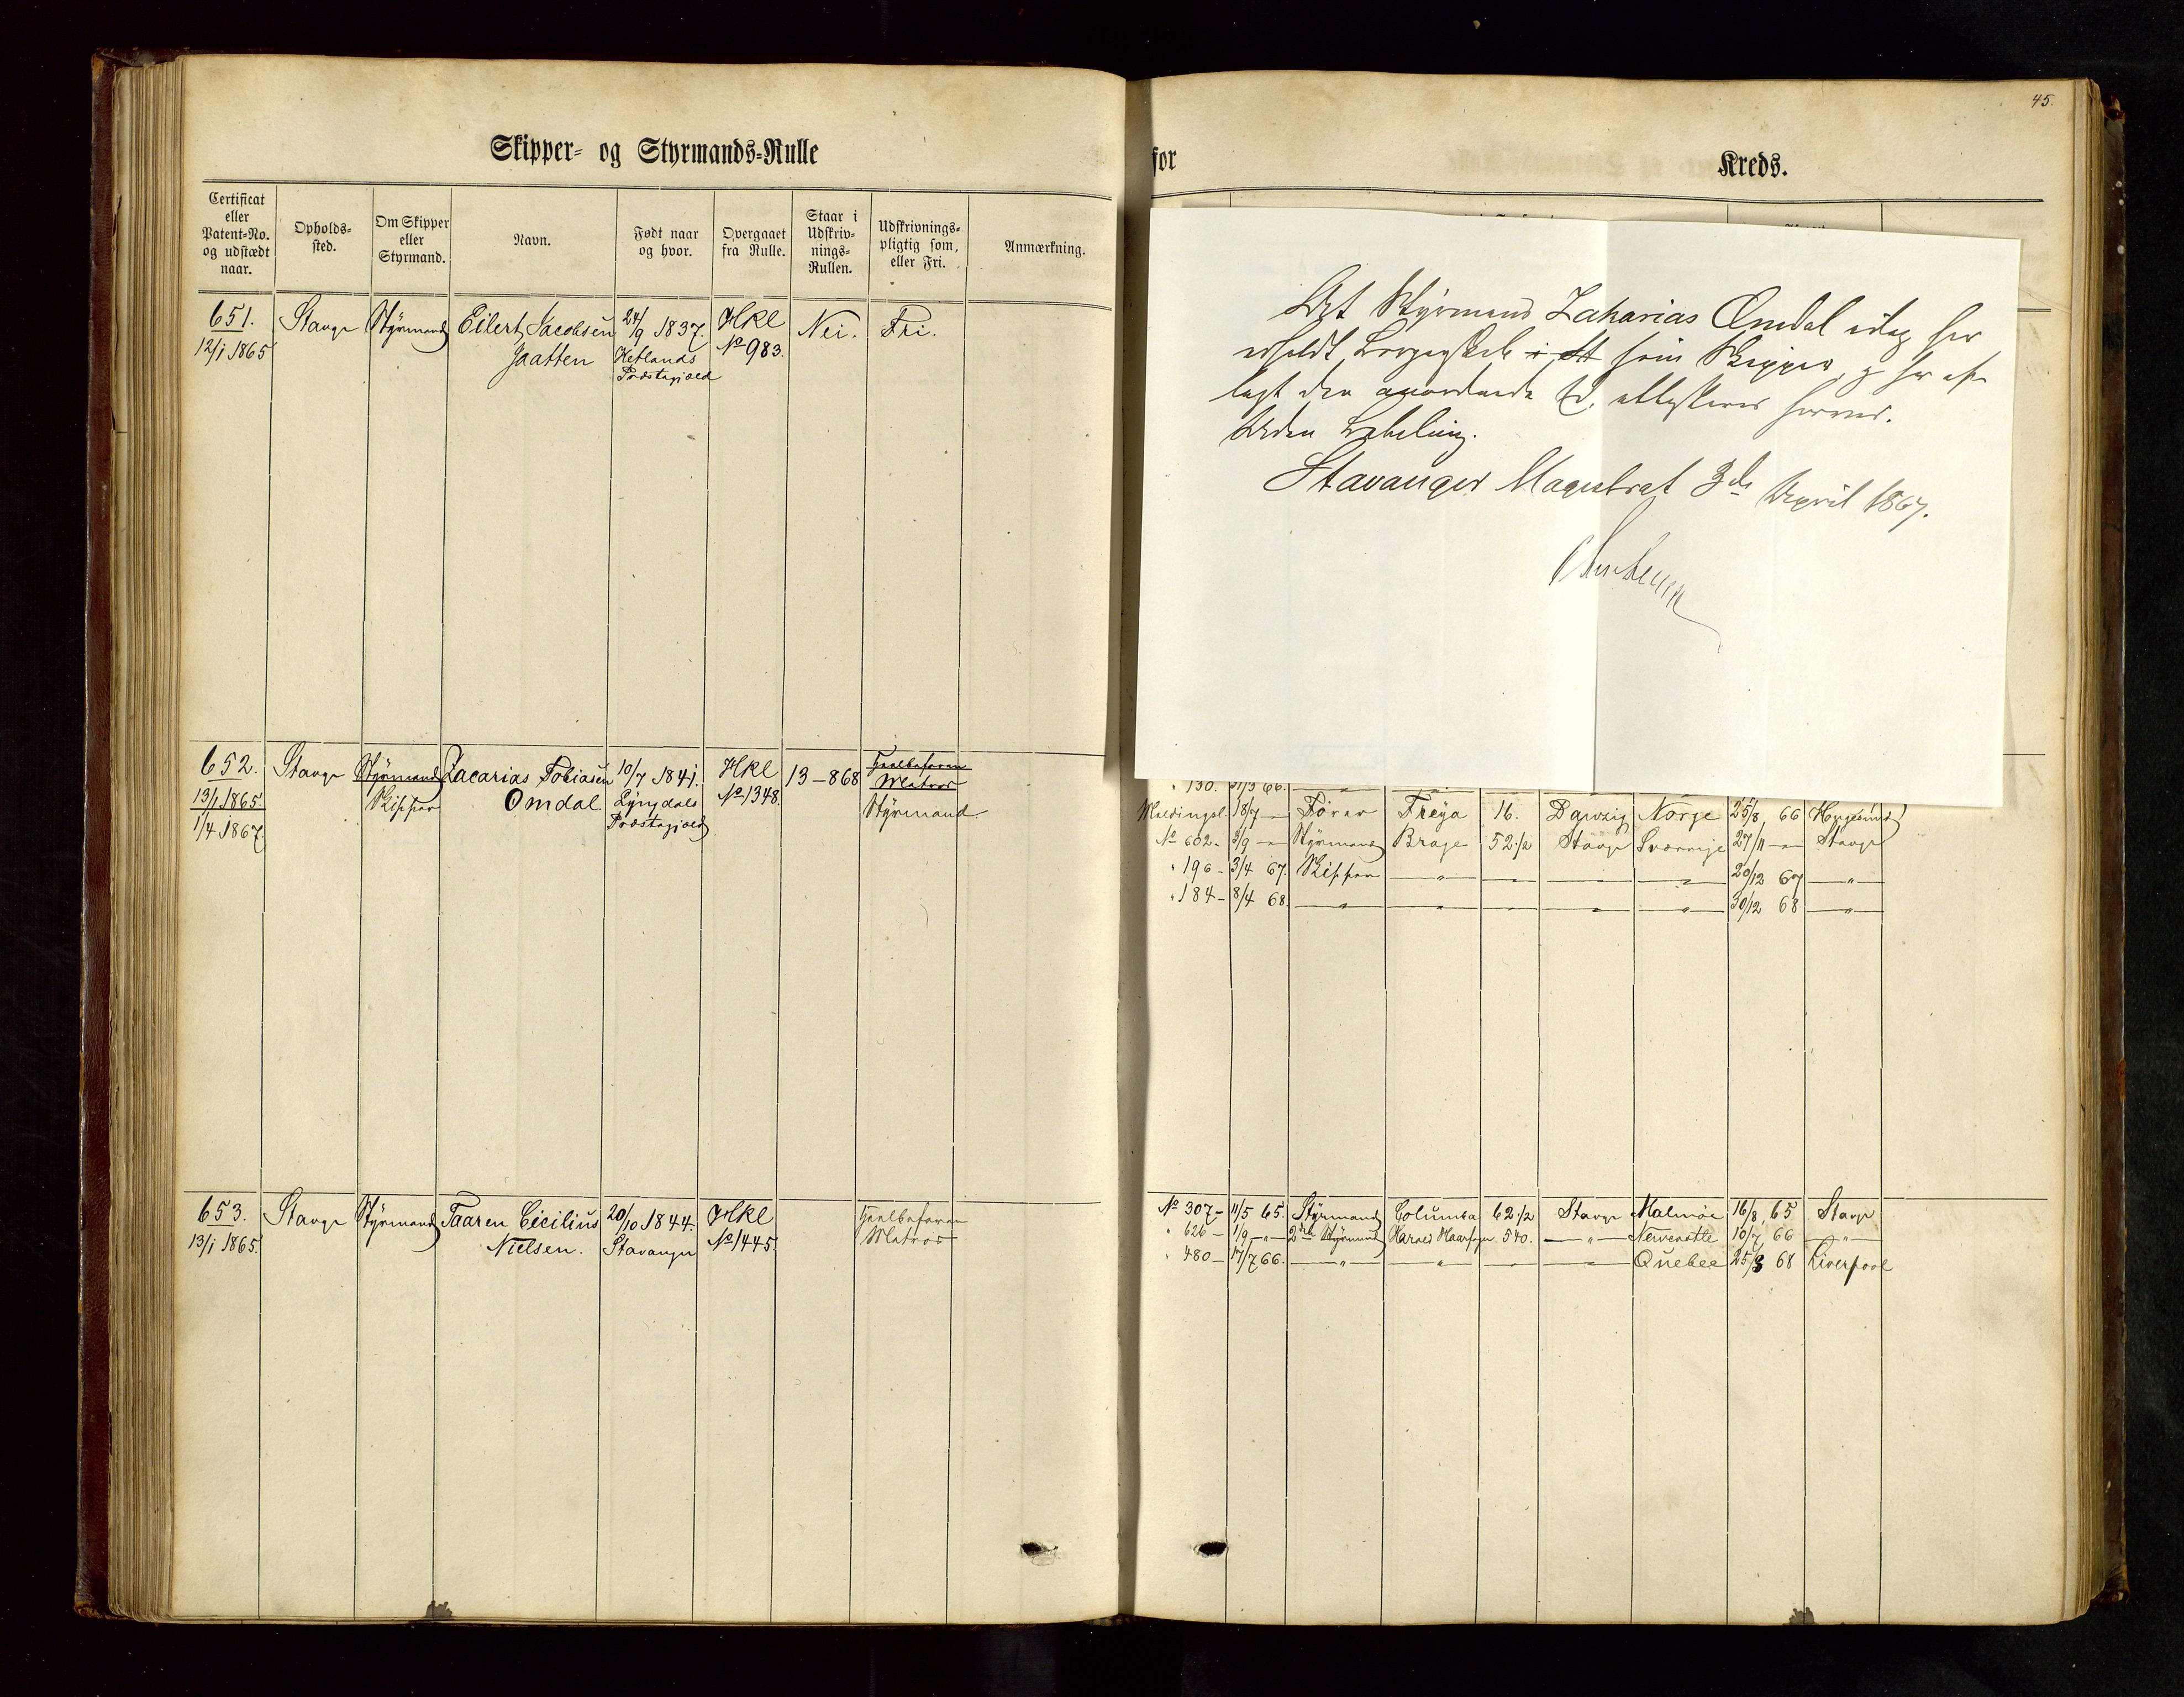 45.
Skipper- og Styrmands-Rulle
for
Kreds.
Certificat eller Patent-No. og udstædt naar.
Opholds-sted.
Om Skipper eller Styrmand.
Navn.
Født naar og hvor.
Overgaaet fra Rulle.
Staar i Udskriv-nings-Rullen.
Udskrivnings-pligtig som, eller Fri.
Anmærkning.
651. Stavgr Styrmand Eilert Jacobsen 24/9 1837. Hkl Nei. Fri.
12/1 1865 Jaatten Hetlands No 983.
Præstegjæld
652. Stavgr Styrmand Zacarias Tobiasen 10/7 1841. Hkl 13-868 Heelbefaren
13/1 1865. Skipper Omdal Lyngdals No 1348. Matros
1/4 1867. Præstegjæld Styrmand.
653. Stavgr Styrmand Taaren Cicilius 20/10 1844. Hkl Heelbefaren
13/1 1865. Nielsen. Stavanger No 1445. Matros
At Styrmand Zakarias Omdal idag har
erholdt Borgerskab i St som Skipper, og har af-
lagt den anordnede Ed, attesteres herved.
Uden Betaling.
Stavanger Magistrat 3de April 1867.
" 130. 31/3 66.
Meldingsl. 18/7 — Fører Freya 16. Danzig Norge 25/8 66 Haugesund
No 602 - 3/9 — Styrmand Brage 52 1/2 Stavgr Sverrige 27/11 — Stavgr
" 196 - 3/4 67. Skipper — " — — — — 20/12 67 — " —
" 184 - 8/4 68. — " — — " — — — " — — " — 30/12 68 — " —
No 307 - 11/5 65. Styrmand Columba 62 1/2 Stavgr Malmöe 16/8 65 Stavgr
" 626 - 1/9 - " - 2den Styrmand Harald Haarfagr 540. — " — Newcastle 10/7 66 — " —
" 480 - 17/7 66. — " — — " — — — " — Quebec 25/8 68 Liverpool